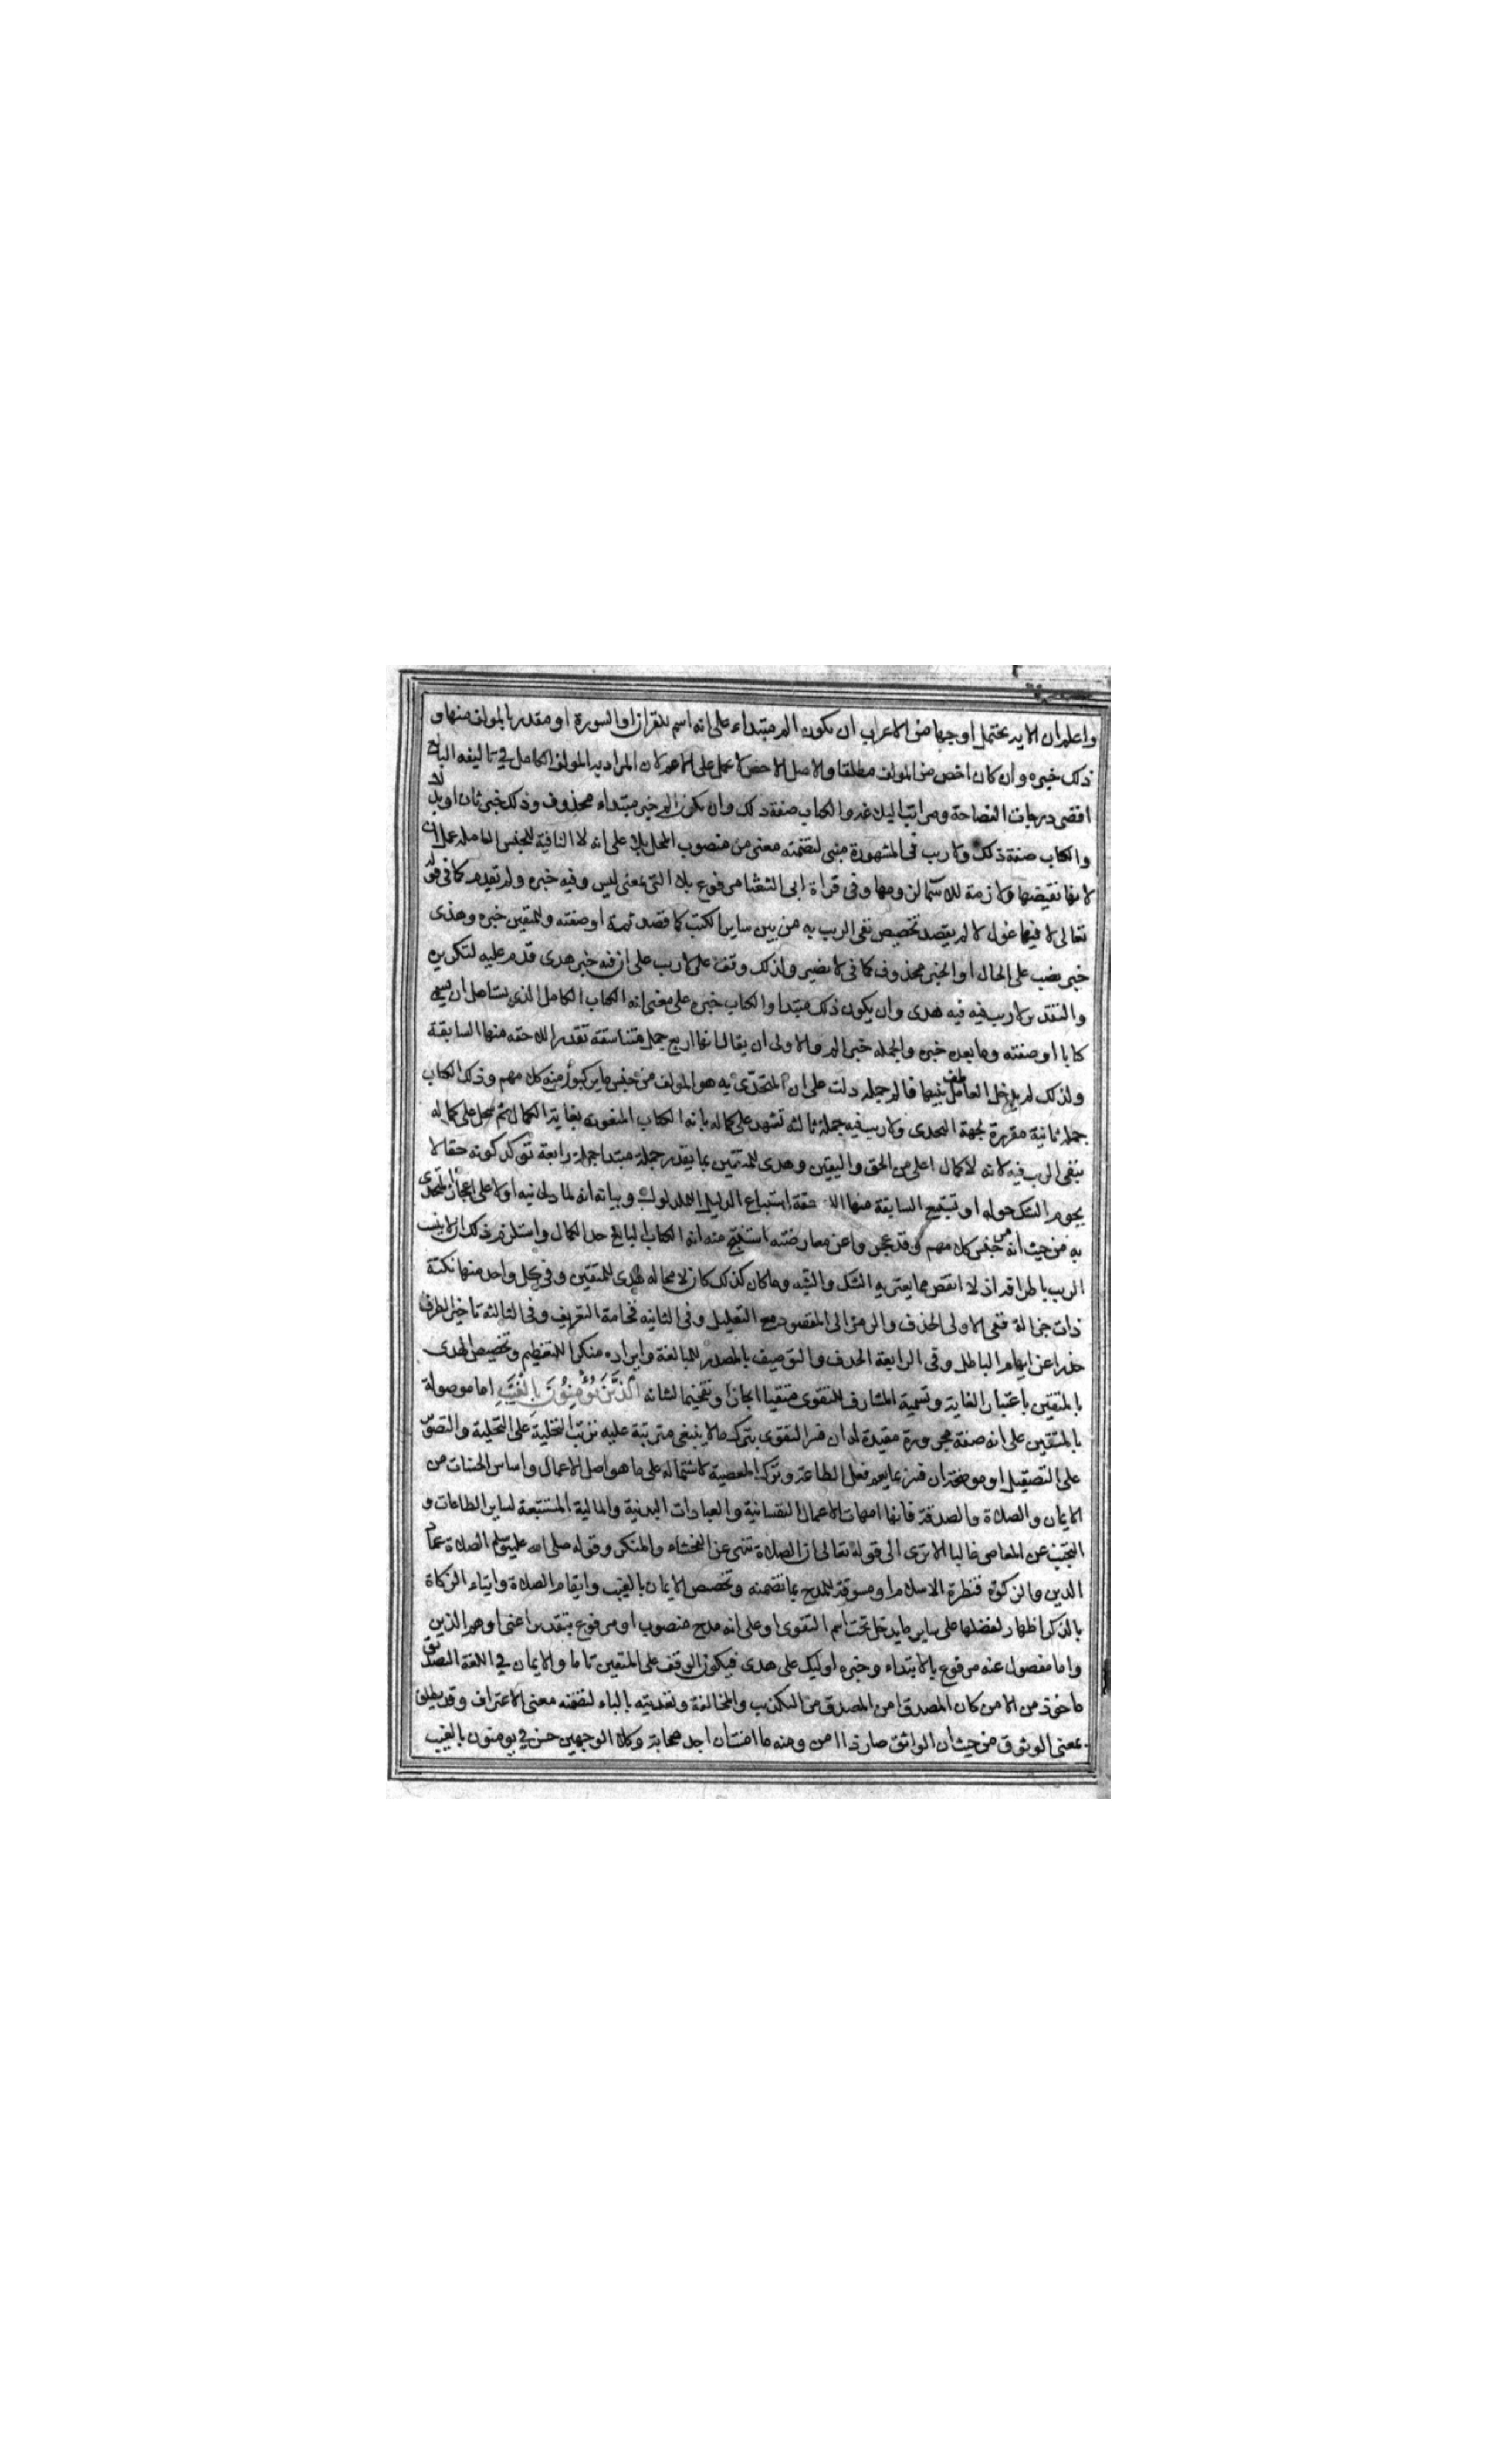 واعلم ان الاية يحتمل اوجها من الاعراب ان يكون الم مبتداء على انه اسم للقران او السورة او مقدر بالمولف منها و
ذلك خبره وان كان اخص من المولف مطلقا والاصل الاخص لا يحمل على الاعم لان المراد به المولف الكامل في تاليفه البالغ
اقصى درجات الفصاحة ومراتب البلاغة والكتاب صفة ذلك وان يكون الم خبر مبتداء محذوف وذلك خبر ثان او بدلا
والكتاب صفة ذلك ولا ريب في المشهورة مبنى لتضمنه معنى من منصوب المحل بلا على انه لا النافية للجنس العاملة عمل ان
لانها نقيضها ولازمة للاسما لزومها وفى قراة ابى الشعثا مرفوع بلا التى بمعنى ليس وفيه خبره ولم تقدم كما في قوله
تعالى لا فيها غول لا لم يقصد تخصيص نفى الريب به من بين ساير الكتب كما قصد ثمة او صفته وللمتقين خبره وهدى
خبر نصب على الحال او الخبر محذوف كما فى لا ضير ولذلك وقف على لا ريب على ان فيه خبر هدى قدم عليه لتنكيره
والتقدير لا ريب فيه فيه هدى وان يكون ذلك مبتدا والكتاب خبره على معنى انه الكتاب الكامل الذى يستاهل ان يسمى
كتابا او صفته وما بعده خبره والجملة خبر الم والاولى ان يقال انها اربع جمل متناسقة تقدر اللاحقة منها السابقة
ولذلك لم يدخل العاطف بينها فالم جملة دلت على ان المتحدى به هو المولف من جنس ما يركبون منه كلامهم وذلك الكتاب
جملة ثانية مقررة لجهة التحدى ولا ريب فيه جملة ثالثة تشهد على كماله بانه الكتاب المنعوت بغاية الكمال ثم سجل على كماله
بنفى الريب فيه لانه لا كمال اعلى من الحق واليقين وهدى للمتقين بما يقدر جملة مبتدا جملة رابعة توكد كونه حقا لا
يحوم الشك حوله او تستتبع السابقة منها اللاحقة استتباع الدليل للمدلول وبيانه انه لما دل نبه اولا على اعجاز المتحدى
به من حيث انه من جنس كلامهم وقد عجزوا عن معارضته استنتج منه انه الكتاب البالغ حد الكمال واستلزم ذلك ان لا يتشبث
الريب باطرافه اذ لا انقص مما يعتريه الشك والشبه وما كان كذلك كان لا محالة هدى للمتقين وفى كل واحد منها نكتة
ذات جزالة ففى الاولى الحذف والرمز الى المقصود مع التعليل وفى الثانيه فخامة التعريف وفى الثالثة تاخير الظرف
حذرا عن ايهام الباطل وفى الرابعة الحذف والتوصيف بالمصدر للمبالغة وايراده منكرا للتعظيم وتخصيص الهدى
بالمتقين باعتبار الغاية وتسمية المشارف للتقوى متقيا ايجازا وتفخيما لشانه الَّذِينَ يُؤْمِنُونَ بِالْغَيْبِ اما موصولة
بالمتقين على انه صفة مجرورة مقيدة له ان فسر التقوى بترك ما لا ينبغى مترتبة عليه ترتب التحلية على التخلية والتصوير
على التصقيل او موضحة ان فسر بما يعم فعل الطاعة وترك المعصية لاشتماله على ما هو اصل الاعمال واساس الحسنات من
الايمان والصلاة والصدقة فانها امهات الاعمال النفسانية والعبادات البدنية والمالية المستتبعة لساير الطاعات و
التجنب عن المعاصى غالبا الا ترى الى قوله تعالى ان الصلاة تنهى عن الفحشاء والمنكر وقوله صلى الله عليه وسلم الصلاة عماد
الدين والزكوة قنطرة الاسلام او مسوقة للمدح بما تضمنه وتخصص الايمان بالغيب واقام الصلاة وايتاء الزكاة
بالذكر اظهار لفضلها على ساير ما يدخل تحت اسم التقوى او على انه مدح منصوب او مرفوع بتقدير اعنى او هم الذين
واما مفصول عنه مرفوع بالابتداء وخبره اوليك على هدى فيكون الوقف على المتقين تاما والايمان في اللغة التصديق
ماخوذ من الامن كان المصدق امن المصدق من التكذيب والمخالفة وتعديته بالباء لتضمنه معنى الاعتراف وقد يطلق
بمعنى الوثوق من حيث ان الواثق صار ذا امن ومنه ما امنت ان اجد صحابة وكلا الوجهين حسن في يومنون بالغيب